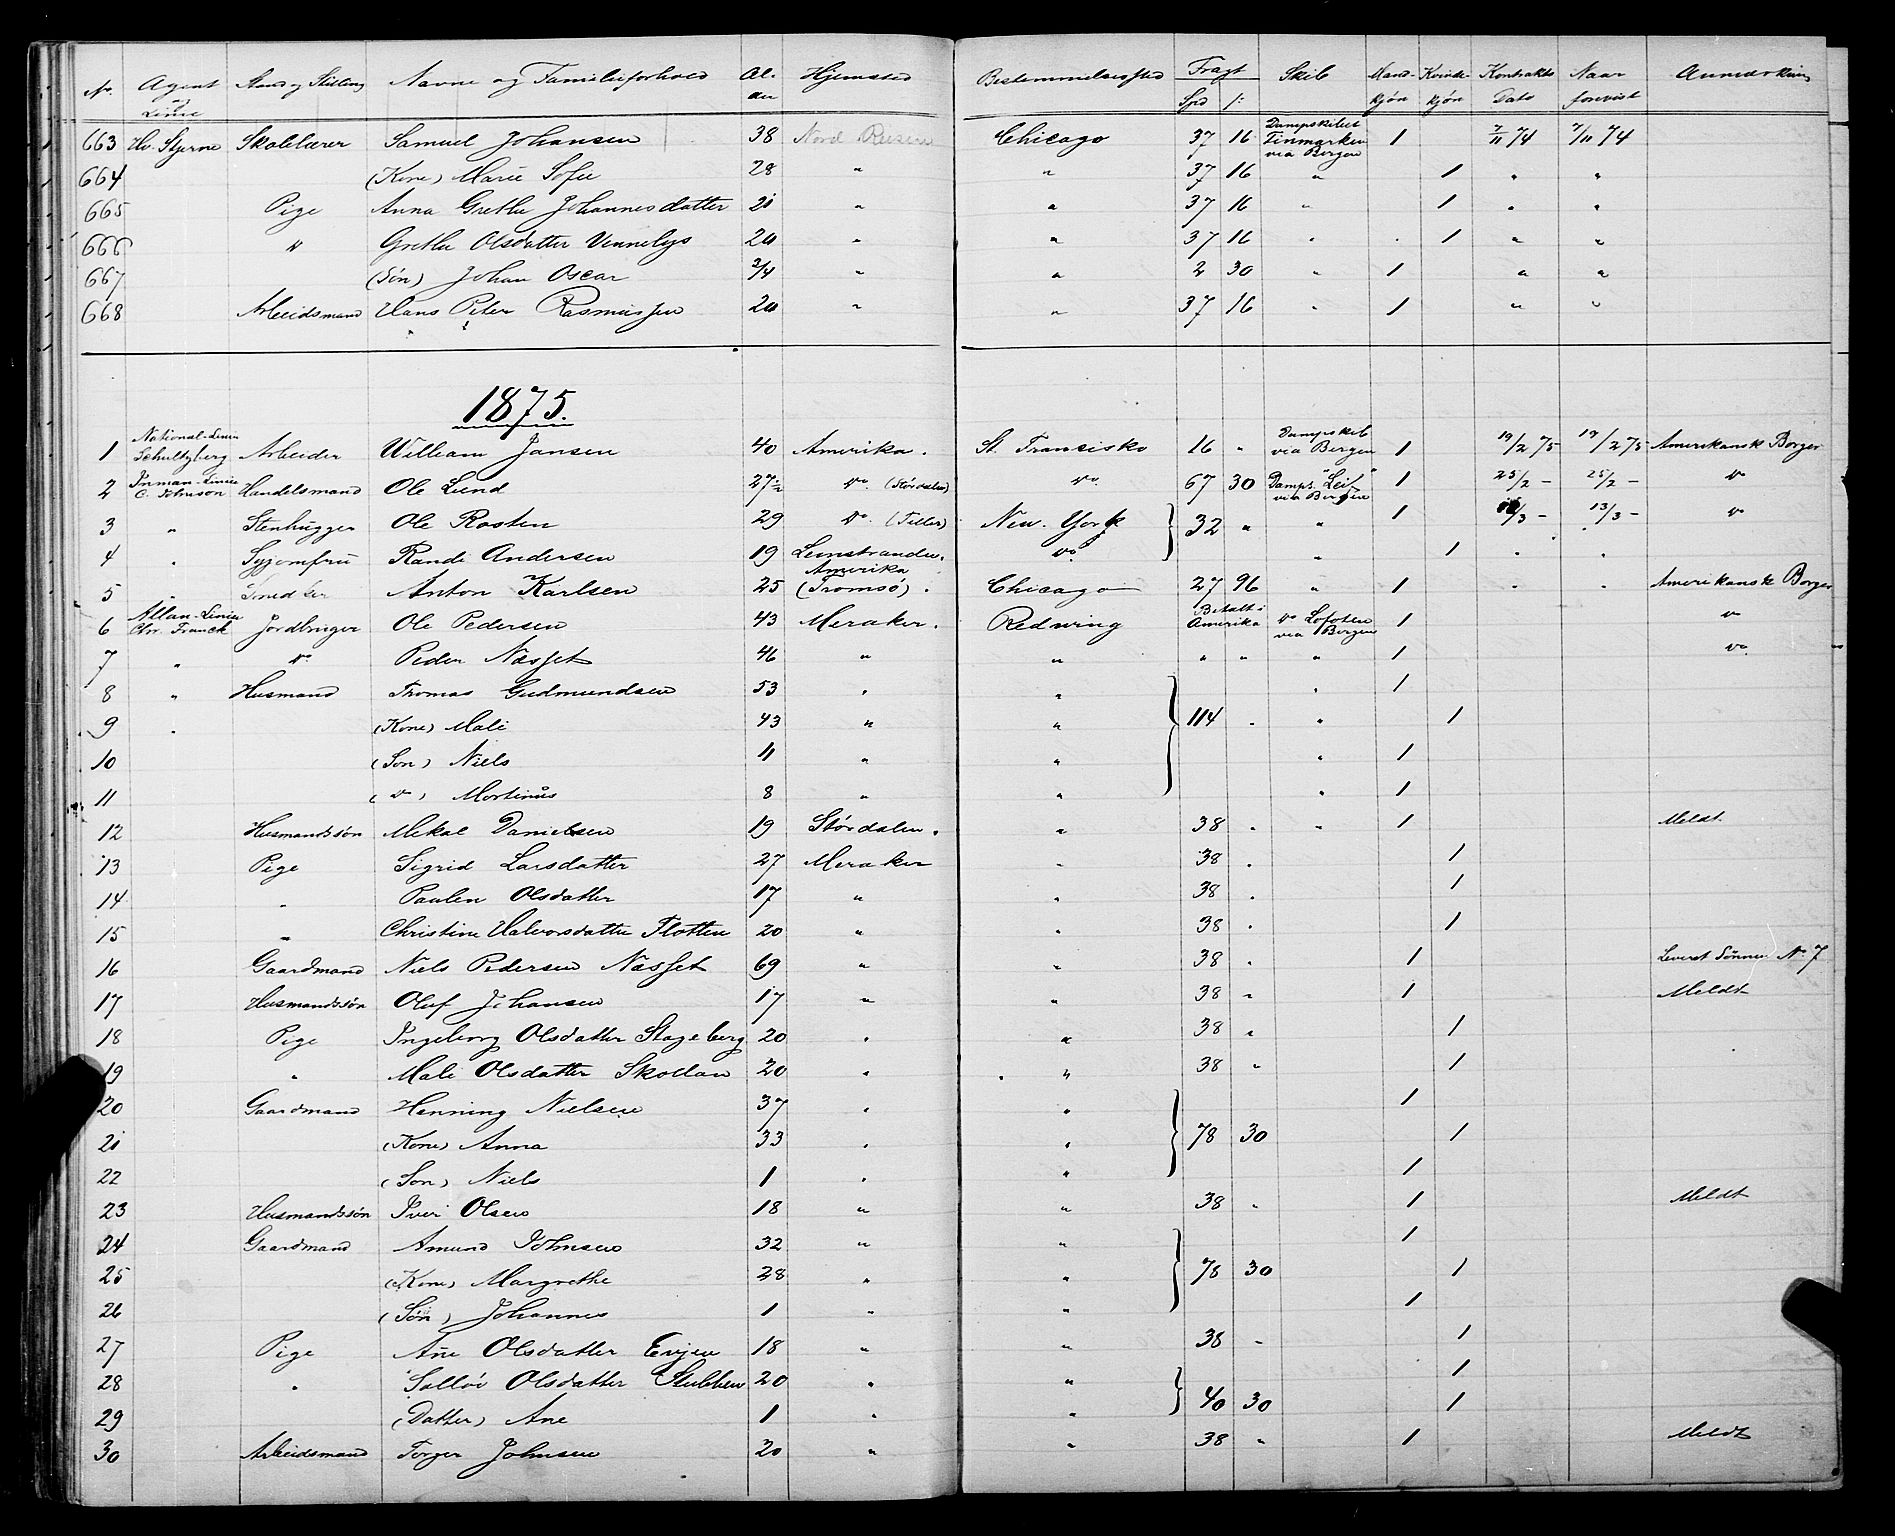 No. Agent og Linie Stand og Stilling Navne og Familieforhold Al-der Hjemsted Bestemmelsessted Fragt Spd ß: Skib Mand-kjøn Kvinde-kjøn Kontrakts Dato Naar forevist Anmærkning
663 Hv. Stjerne Skolelærer Samuel Johansen 38 Nord Reisen Chicago 37 16 Dampskibet Finmarken via Bergen 1 7/11 74 7/11 74
664 (Kone) Marie Sofie 28 " " 37 16 " 1 " "
665 Pige Anna Grethe Johannesdatter 21 " " 37 16 " 1 " "
666 " Grethe Olsdatter Vinnelys 20 " " 37 16 " 1 " "
667 (Søn) Johan Oscar 3/4 " " 2 30 " 1 " "
668 Arbeidsmand Hans Peter Rasmussen 20 " " 37 16 " 1 " "
1875.
1 National-Linie Schultzberg Arbeider William Jansen 40 Amerika. St. Fransisko 16 " Dampskib via Bergen 1 19/2 75 19/2 75 Amerikansk Borger
2 Inman-Linie C. Johnson Handelsmand Ole Lund 27 do (Størdalen) do 67 30 Damps. "Leif" via Bergen 1 25/2 - 25/2 - do
3 " Stenhugger Ole Rosten 29 do. (Tiller) New-York } 32 " " 1 /3 - 13/3 - do
4 " Syjomfru Randi Andersen 19 Leinstranden. do " 1 " "
5 " Anton Karlsen 25 Amerika (Tromsø). Chicago 27 96 " 1 " " Amerikansk Borger
6 Allan-Linie Chr. Franck Jordbruger Ole Pedersen 43 Meraker. Redwing Betalt i Amerika do Lofoten via Bergen 1 do
7 " do Peder Næsset 46 " " " " " 1 do
8 " Husmand Tromas Gudmundsen 53 " " " 1
9 " (Kone) Mali 43 " " } 114 " " 1
10 (Søn) Niels 11 " " " 1
11 (do) Mortinus 8 " " " 1
12 Husmandssøn Mekal Danielsen 19 Størdalen. " 38 " " 1 Meldt.
13 Pige Sigrid Larsdatter 27 Meraker " 38 " 1
14 " Paulen Olsdatter 17 " " 38 " 1
15 " Christine Halvorsdatter Flotten 20 " " 38 " 1
16 Gaardmand Niels Pedersen Næsset 69 " " 38 " 1 Sønnen No 7
17 Husmandssøn Oluf Johansen 17 " " 38 " 1 Meldt
18 Pige Ingeborg Olsdatter Stageberg 20 " " 38 " 1
19 " Mali Olsdatter Skollan 20 " " 38 " 1
20 Gaardmand Henning Nielsen 37 " " 1
21 (Kone) Anna 33 " " } 78 30 1
22 (Søn) Niels 1 " " 1
23 Husmandssøn Iver Olsen 18 " " 38 " 1 Meldt
24 Gaardmand Amund Johnsen 32 " " 1
25 (Kone) Margrethe 28 " " } 78 30 1
26 (Søn) Johannes 1 " " 1
27 Pige Ane Olsdatter Evjen 18 " " 38 " 1
28 " Olsdatter Stubben 20 " " 1
29 " (Datter) Ane 1 " " } 40 30 1
30 Arbeidsmand Torger Johnsen 20 " " 38 " 1 Meldt